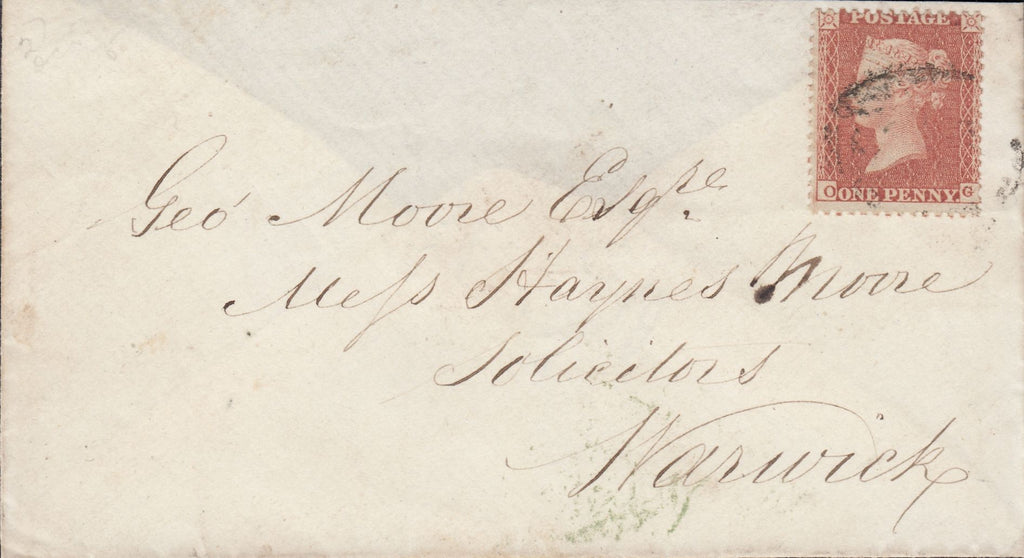 POSTAGE
O ONE PENNY. G
Geo Moore Esqre.
Mess Haynes Moore
Solicitors
Warwick